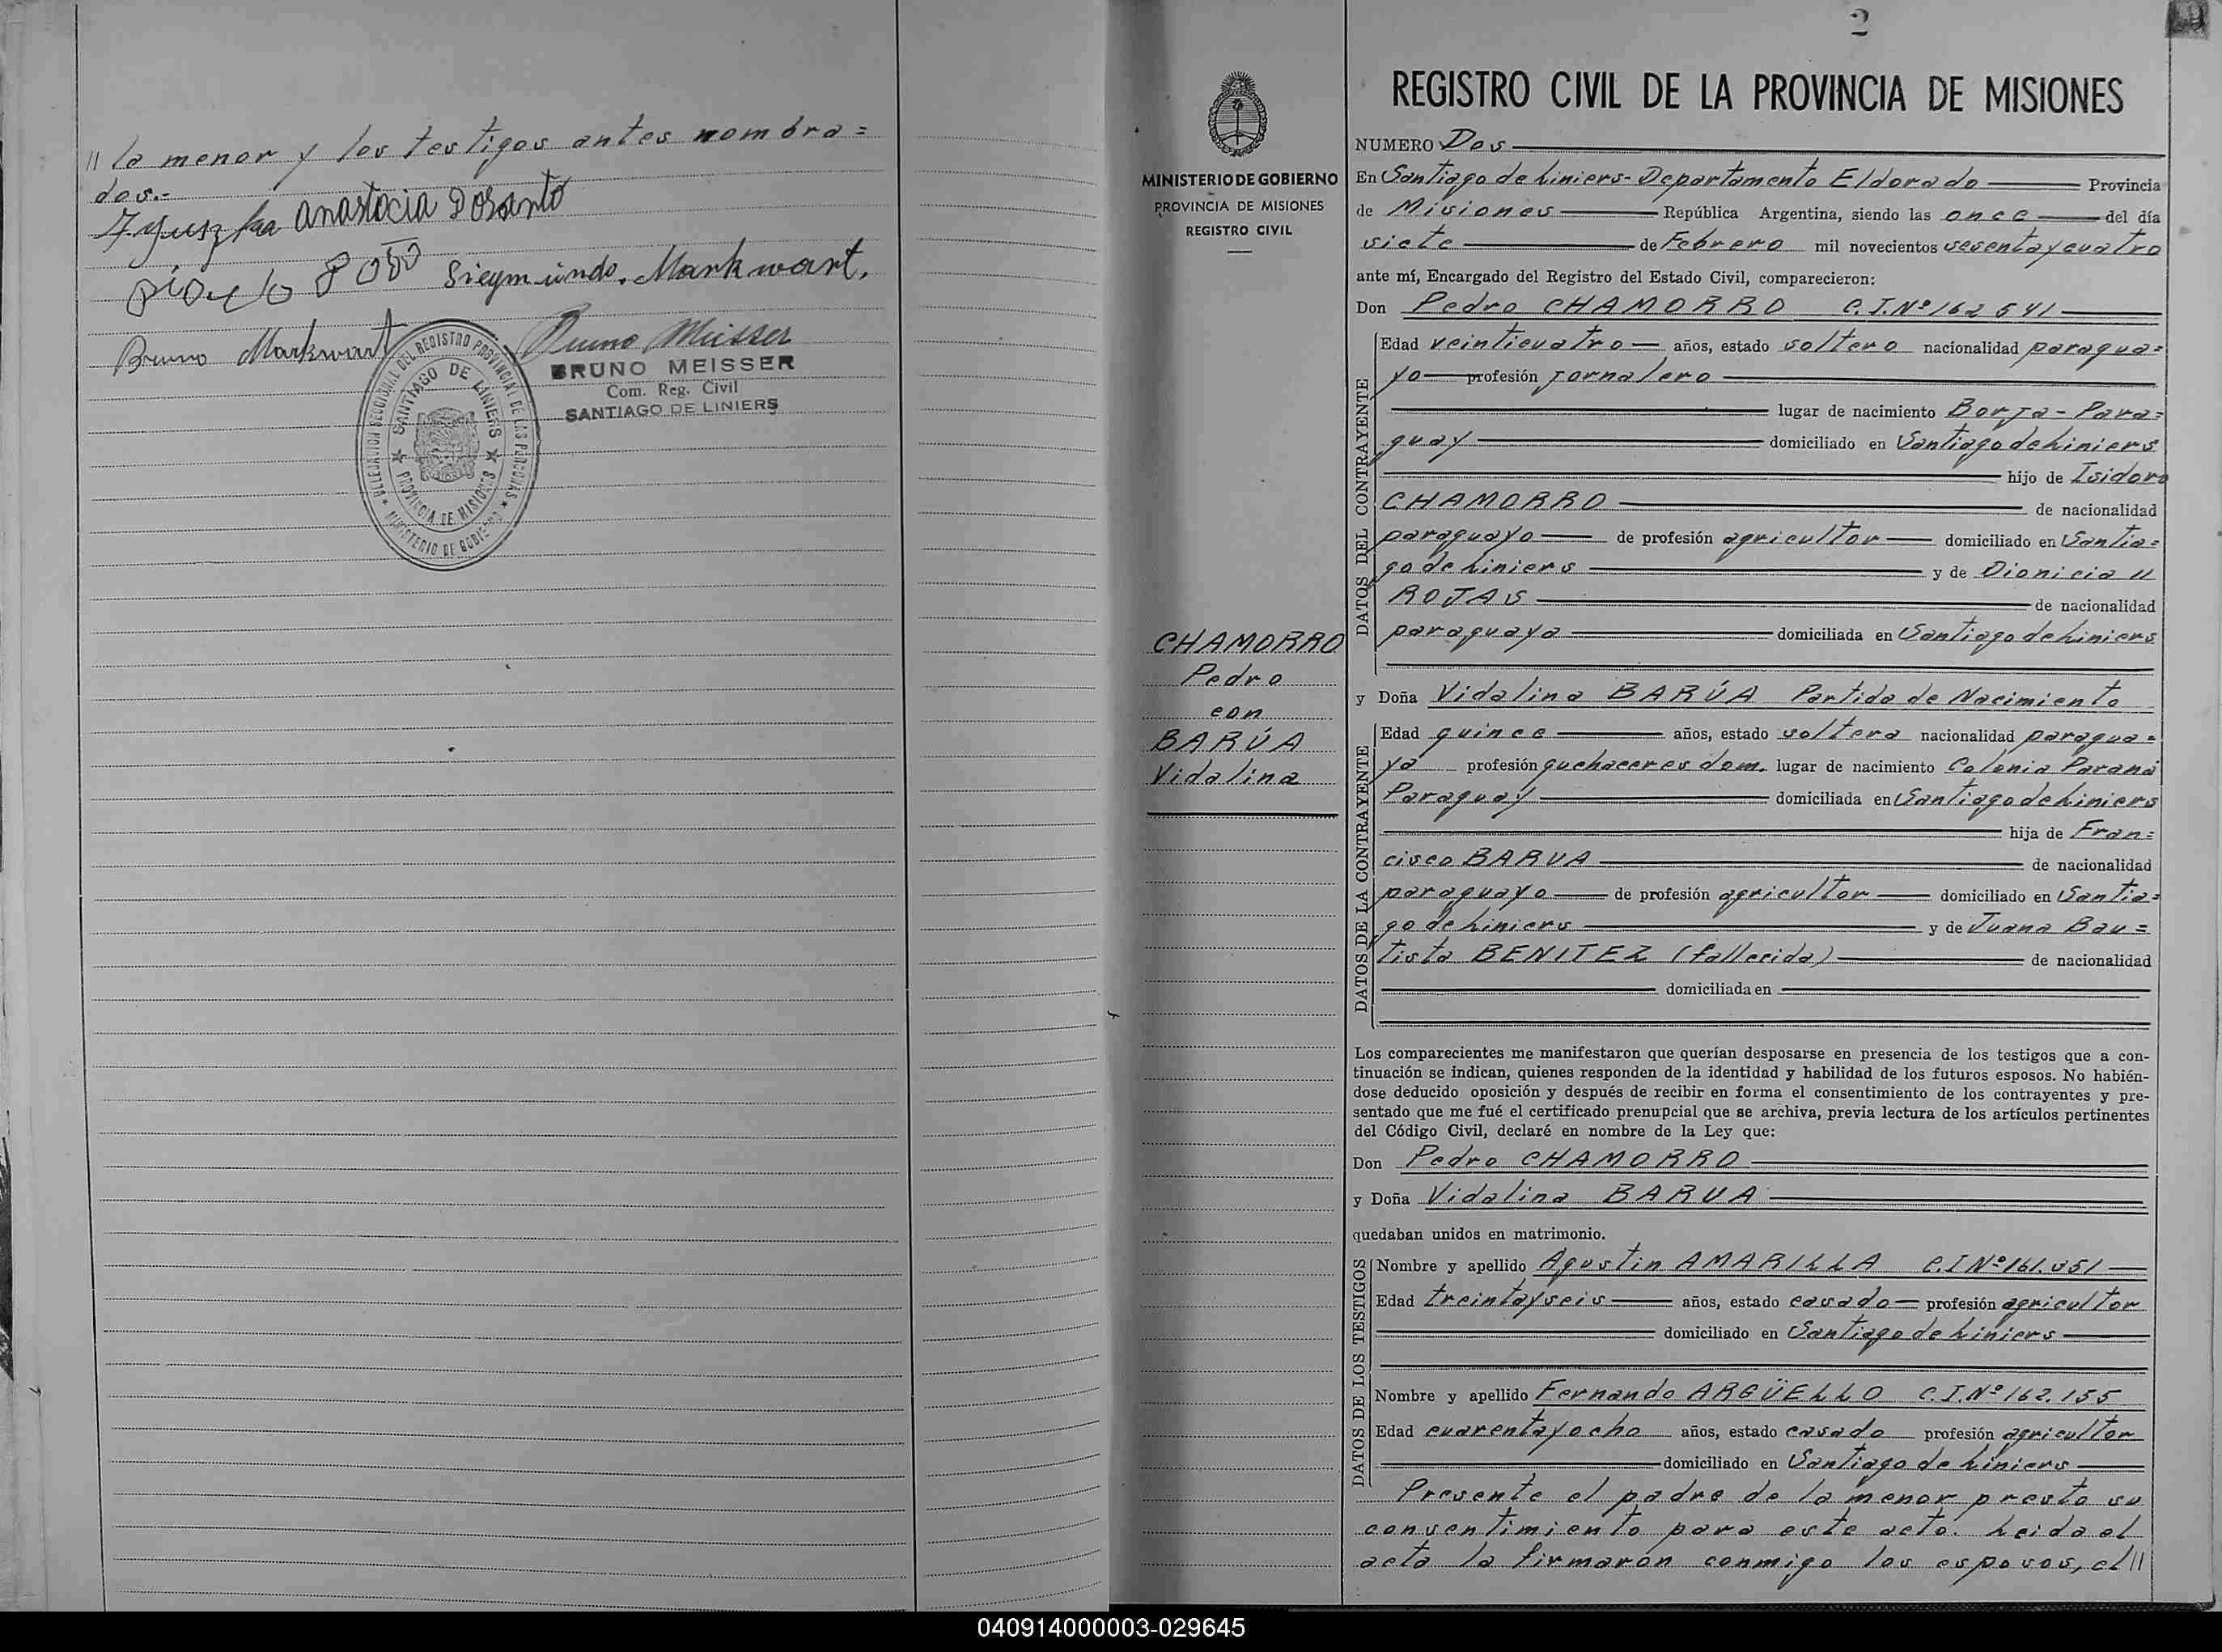 // la menor y los testigos antes nombra=
dos.-
Anastacia Dosanto
Sieymundo. Markwart,
Bruno Markwart
Bruno Meisser
BRUNO MEISSER
Com. Reg. Civil
SANTIAGO DE LINIERS
DELEGACION SECCIONAL DEL REGISTRO PROVINCIAL DE LAS PERSONAS
SANTIAGO DE LINIERS
PROVINCIA DE MISIONES
MINISTERIO DE GOBIERNO
2
MINISTERIO DE GOBIERNO
PROVINCIA DE MISIONES
REGISTRO CIVIL
CHAMORRO
Pedro
con
BARÚA
Vidalina
REGISTRO CIVIL DE LA PROVINCIA DE MISIONES
NUMERO Dos
En Santiago de Liniers - Departamento Eldorado Provincia
de Misiones República Argentina, siendo las once del día
siete de Febrero mil novecientos sesentaycuatro
ante mí, Encargado del Registro del Estado Civil, comparecieron:
Don Pedro CHAMORRO C.I.Nº 162 541
DATOS DEL CONTRAYENTE
Edad veinticuatro años, estado soltero nacionalidad paragua=
yo profesión jornalero
lugar de nacimiento Borja - Para=
guay domiciliado en Santiago de Liniers
hijo de Isidoro
CHAMORRO de nacionalidad
paraguayo de profesión agricultor domiciliado en Santia=
go de Liniers y de Dionicia //
ROJAS de nacionalidad
paraguaya domiciliada en Santiago de Liniers
y Doña Vidalina BARÚA Partida de Nacimiento
DATOS DE LA CONTRAYENTE
Edad quince años, estado soltera nacionalidad paragua=
ya profesión quehaceres dom. lugar de nacimiento Colonia Paraná
Paraguay domiciliada en Santiago de Liniers
hija de Fran=
cisco BARUA de nacionalidad
paraguayo de profesión agricultor domiciliado en Santia=
go de Liniers y de Juana Bau=
tista BENITEZ (fallecida) de nacionalidad
domiciliada en
Los comparecientes me manifestaron que querían desposarse en presencia de los testigos que a con-
tinuación se indican, quienes responden de la identidad y habilidad de los futuros esposos. No habién-
dose deducido oposición y después de recibir en forma el consentimiento de los contrayentes y pre-
sentado que me fué el certificado prenupcial que se archiva, previa lectura de los artículos pertinentes
del Código Civil, declaré en nombre de la Ley que:
Don Pedro CHAMORRO
y Doña Vidalina BARUA
quedaban unidos en matrimonio.
DATOS DE LOS TESTIGOS
Nombre y apellido Agustin AMARILLA C.I Nº 161.351
Edad treintayseis años, estado casado profesión agricultor
domiciliado en Santiago de Liniers
Nombre y apellido Fernando ARGÜELLO C.I.Nº 162.155
Edad cuarentayocho años, estado casado profesión agricultor
domiciliado en Santiago de Liniers
Presente el padre de la menor presta su
consentimiento para este acto. Leida el
acta la firmarón conmigo los esposos, el //
040914000003-029645